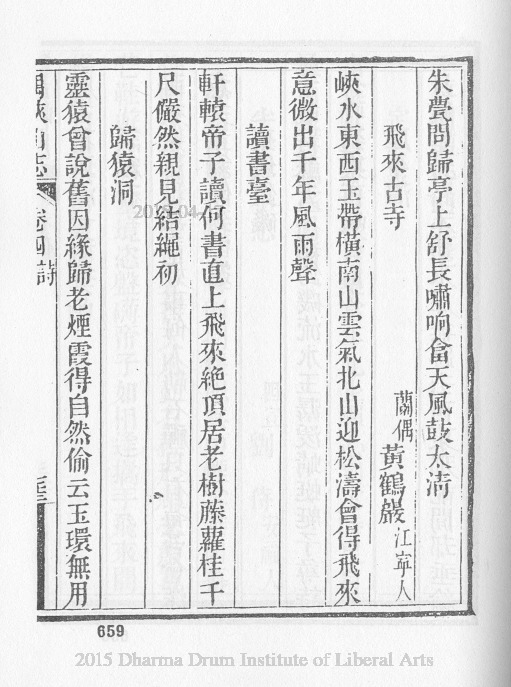 朱甍問歸亭上舒長嘯响畣天風鼓太淸
飛來古寺
蘭偶黃鶴巖江寧人
峽水東西玉帶橫南山雲氣北山迎松濤會得飛來
意微出千年風雨聲
讀書臺
軒轅帝子讀何書直上飛來絶頂居老樹藤蘿桂千
尺儼然親見結繩初
歸猿洞
靈猿曾說舊因緣歸老煙霞得自然偷云玉環無用
禺峽山志 卷四詩
659
2015 Dharma Drum Institute of Liberal Arts